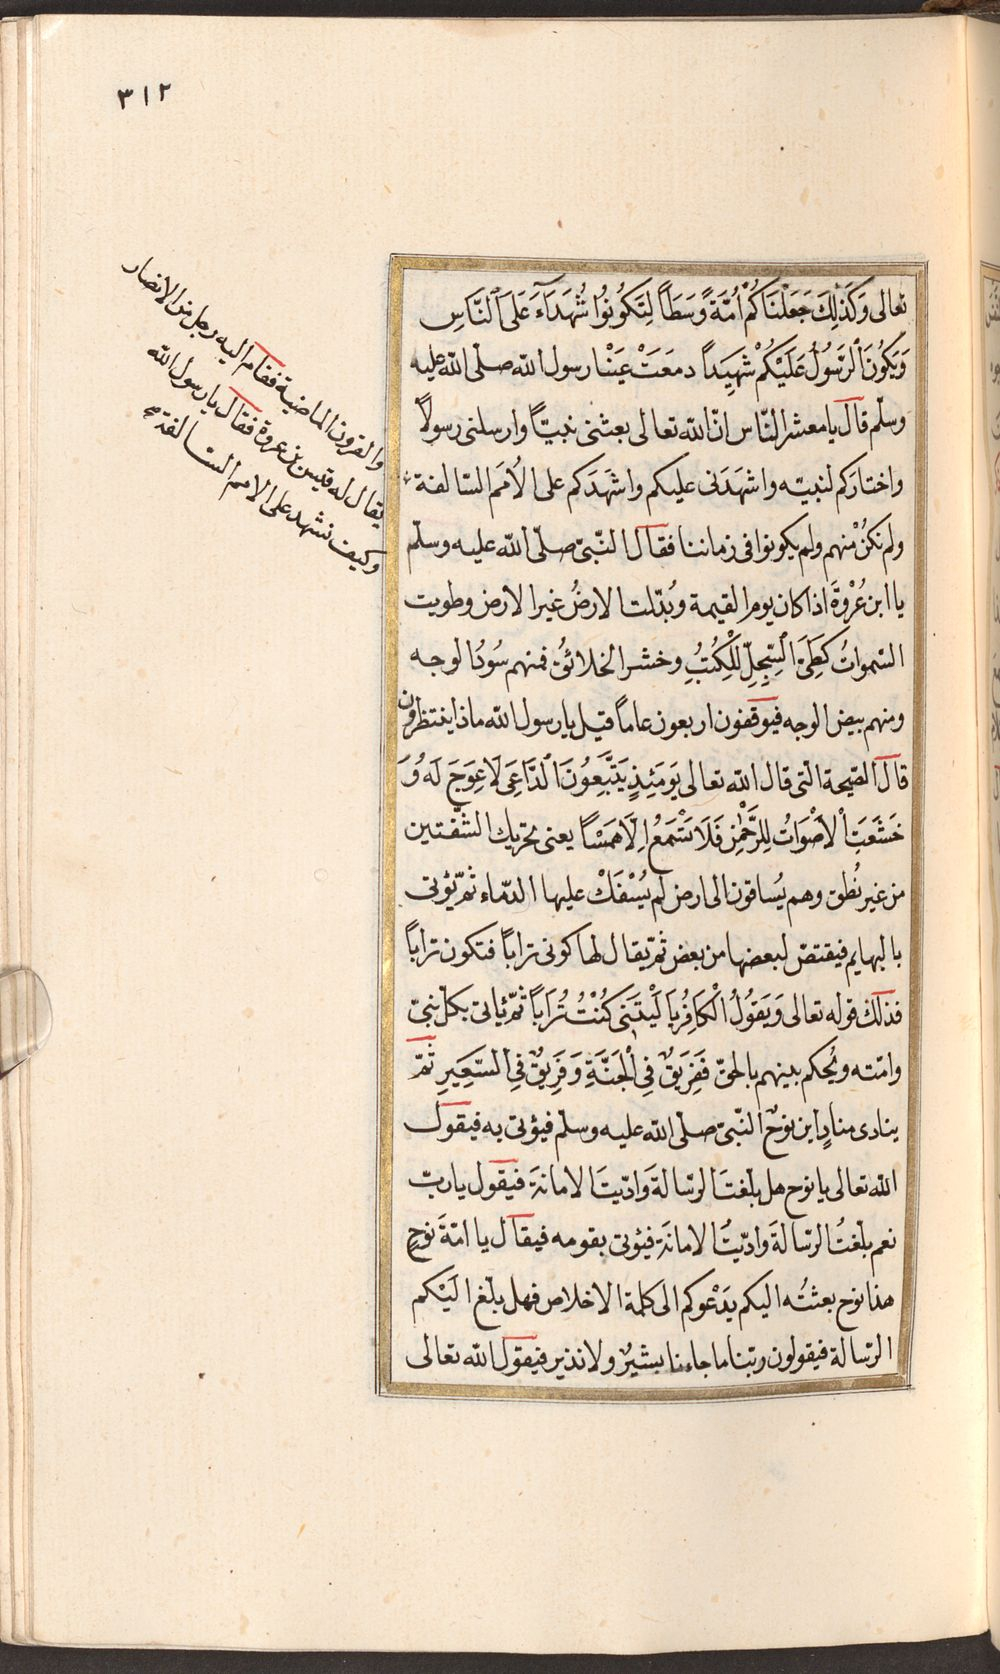 ٣١٢
تعالى وَكَذٰلِكَ جَعَلْنَاكُمْ اُمَّةً وَسَطًا لِتَكُونُوا شُهَدَآءَ عَلَى النَّاسِ
وَيَكُونَ الرَّسُولُ عَلَيْكُمْ شَهِيدًا دمعَتْ عَيْنا رسول الله صلى الله عليه
وسلّم قال يا معشر النّاس انّ الله تعالى بعثنى نبيّاً وارسلنى رسولاً
واختارَكم لنبيّه واشهَدَنى عليكم واشهَدَكم على الاُمَم السّالفة
والقرون الماضية فقام اليه رجل من الانصار
يقال له قيس بن عروة فقال يا رسول الله
وكيف نشهد على الامم السالفة
ولم نكنْ منهم ولم يكونوا فى زماننا فقال النّبىّ صلّى الله عليه وسلّم
يا ابن عُرْوَةَ اذا كان يوم القيمة وبُدّلت الارضُ غير الارض وطويت
السّمواتُ كَطَىِّ السِّجِلِّ لِلْكُتُبِ وحشر الخلائقُ فمنهم سُودُ الوجه
ومنهم بيض الوجه فيوقفون اربعون عاماً قيل يا رسول الله ماذا ينتظرون
قال الصّيحة الّتى قال الله تعالى يَوْمَئِذٍ يَتَّبِعُونَ الدَّاعِىَ لَا عِوَجَ لَهُ وَ
خَشَعَتِ الْاَصْوَاتُ لِلرَّحْمٰنِ فَلَا تَسْمَعُ اِلَّا هَمْسًا يعنى تحريك الشّفتين
من غير نُطق وهم يُساقون الى ارض لم يُسْفَكْ عليها الدّماء ثمّ يؤتى
بالبهايم فيقتصّ لبعضها من بعض ثمّ يقال لها كونى تراباً فتكون تراباً
فذلك قوله تعالى وَيَقُولُ الْكَافِرُ يَا لَيْتَنِى كُنْتُ تُرَابًا ثمّ يأتى بكلّ نبىّ
وامّته ويُحكم بينهم بالحقّ فَفَرِيقٌ فِى الْجَنَّةِ وَفَرِيقٌ فِى السَّعِيرِ ثمّ
ينادى منادٍ اين نوحٌ النّبىّ صلى الله عليه وسلم فيؤتى به فيقول
الله تعالى يا نوح هل بلّغتَ الرّسالةَ وادّيتَ الامانة فيقول يا ربّ
نعم بلّغتُ الرّسالةَ وادّيتُ الامانة فيؤتى بقومه فيقال يا امّةَ نوحٍ
هذا نوح بعثتُه اليكم يَدْعوكم الى كلمة الاخلاص فهل بلّغ اليْكم
الرّسالة فيقولون ربّنا ما جاءنا بشيرٌ ولا نذير فيقول الله تعالى